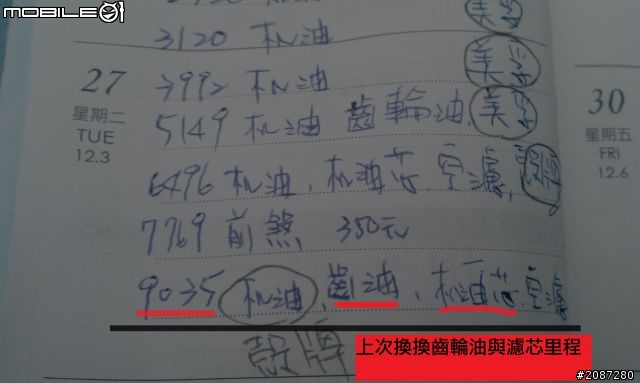 MOBILE01
3120 机油
美孚
27
星期二
TUE
12.3
3992 机油
美孚
5149 机油 齒輪油, 美孚
6496 机油, 机油芯, 空濾,
7769 前煞 350元
9035 机油, 齒油, 机油芯, 空濾
殼牌
30
星期五
FRI
12.6
上次換換齒輪油與濾芯里程
#2087280